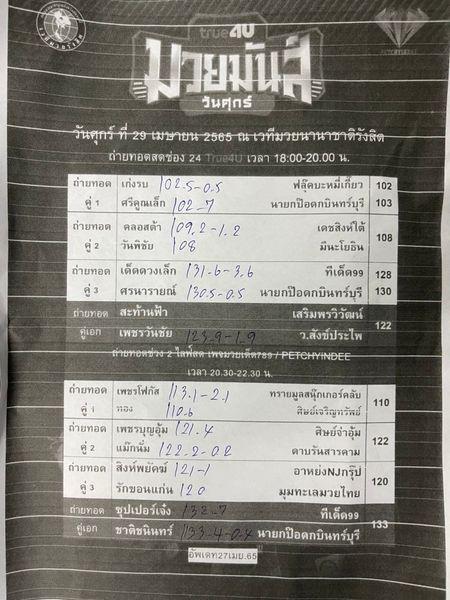 true4U
PETCHYINDEE
มวยมันส์
วันศุกร์
วันศุกร์ ที่ 29 เมษายน 2565 ณ เวทีมวยนานาชาติรังสิต
ถ่ายทอดสดช่อง 24 True4U เวลา 18:00-20.00 น.
ถ่ายทอด เก่งรบ 102.5-0.5 ฟลุ๊คบะหมี่เกี๊ยว 102
คู่ 1 ศรีคูณเล็ก 102-7 นายกป๊อดกบินทร์บุรี 103
ถ่ายทอด คลอสต้า 109.2-1.2 เดชสิงห์ใต้
108
คู่ 2 วันพิชัย 108 มีนะโยธิน
ถ่ายทอด เด็ดดวงเล็ก 131.6-3.6 ทีเด็ด99 128
คู่ 3 ศรนารายณ์ 130.5-0.5 นายกป๊อดกบินทร์บุรี 130
ถ่ายทอด สะท้านฟ้า เสริมพรวิวัฒน์
122
คู่เอก เพชรวันชัย 123.9-1.9 ว.สังข์ประไพ
ถ่ายทอดช่วง 2 ไลฟ์สด เพจมวยเด็ด789 / PETCHYINDEE
เวลา 20.30-22.30 น.
ถ่ายทอด เพชรโฟกัส 113.1-2.1 ทรายมูลสนุ๊กเกอร์คลับ
110
คู่ 1 ทอง 110.6 ศิษย์เจริญทรัพย์
ถ่ายทอด เพชรบุญอุ้ม 121.4 ศิษย์จ่าอุ้ม
122
คู่ 2 แม๊กนั่ม 122.2-0.2 ดาบรันสารคาม
ถ่ายทอด สิงห์พยัคฆ์ 121-1 อาหย่งNJกรุ๊ป
120
คู่ 3 รักขอนแก่น 120 มุมทะเลมวยไทย
ถ่ายทอด ซุปเปอร์เจ๋ง 132.7 ทีเด็ด99
133
คู่เอก ชาติชนินทร์ 133.4-0.4 นายกป๊อดกบินทร์บุรี
อัพเดท27เมย.65